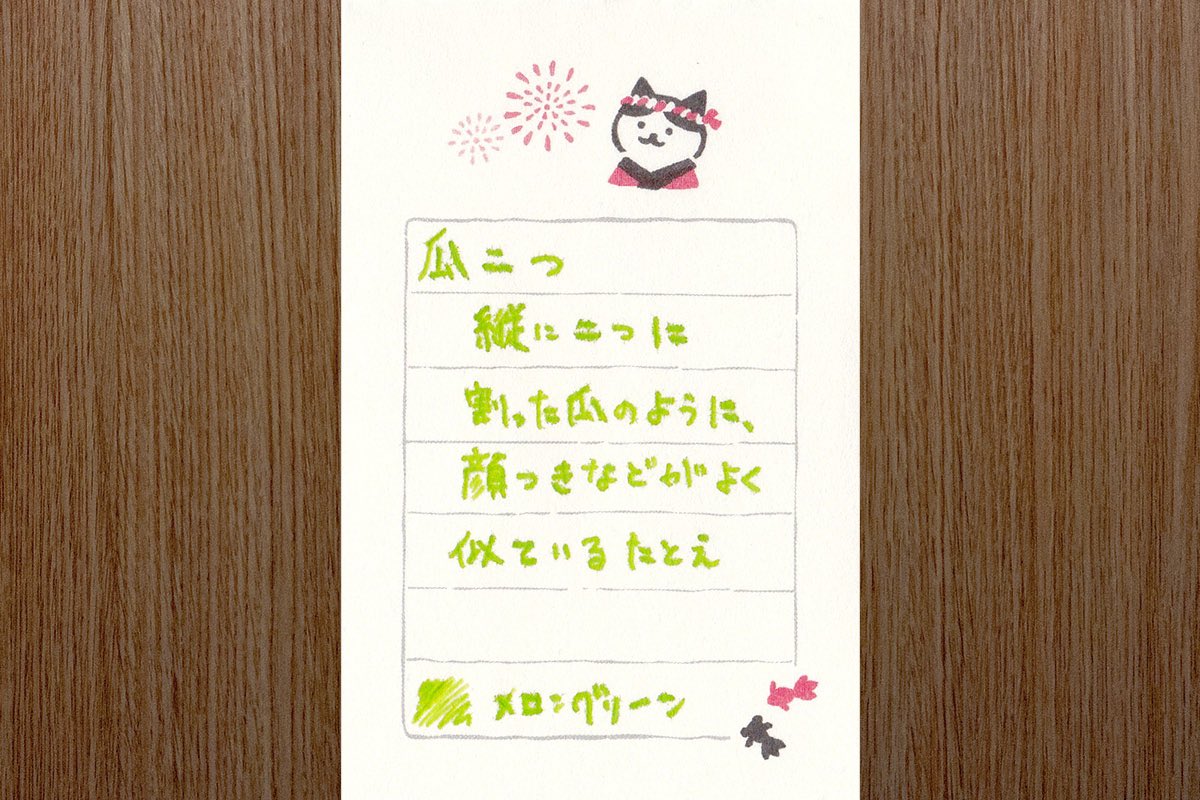 瓜二つ
縦に二つに
割った瓜のように、
顔つきなどがよく
似ているたとえ
メロングリーン